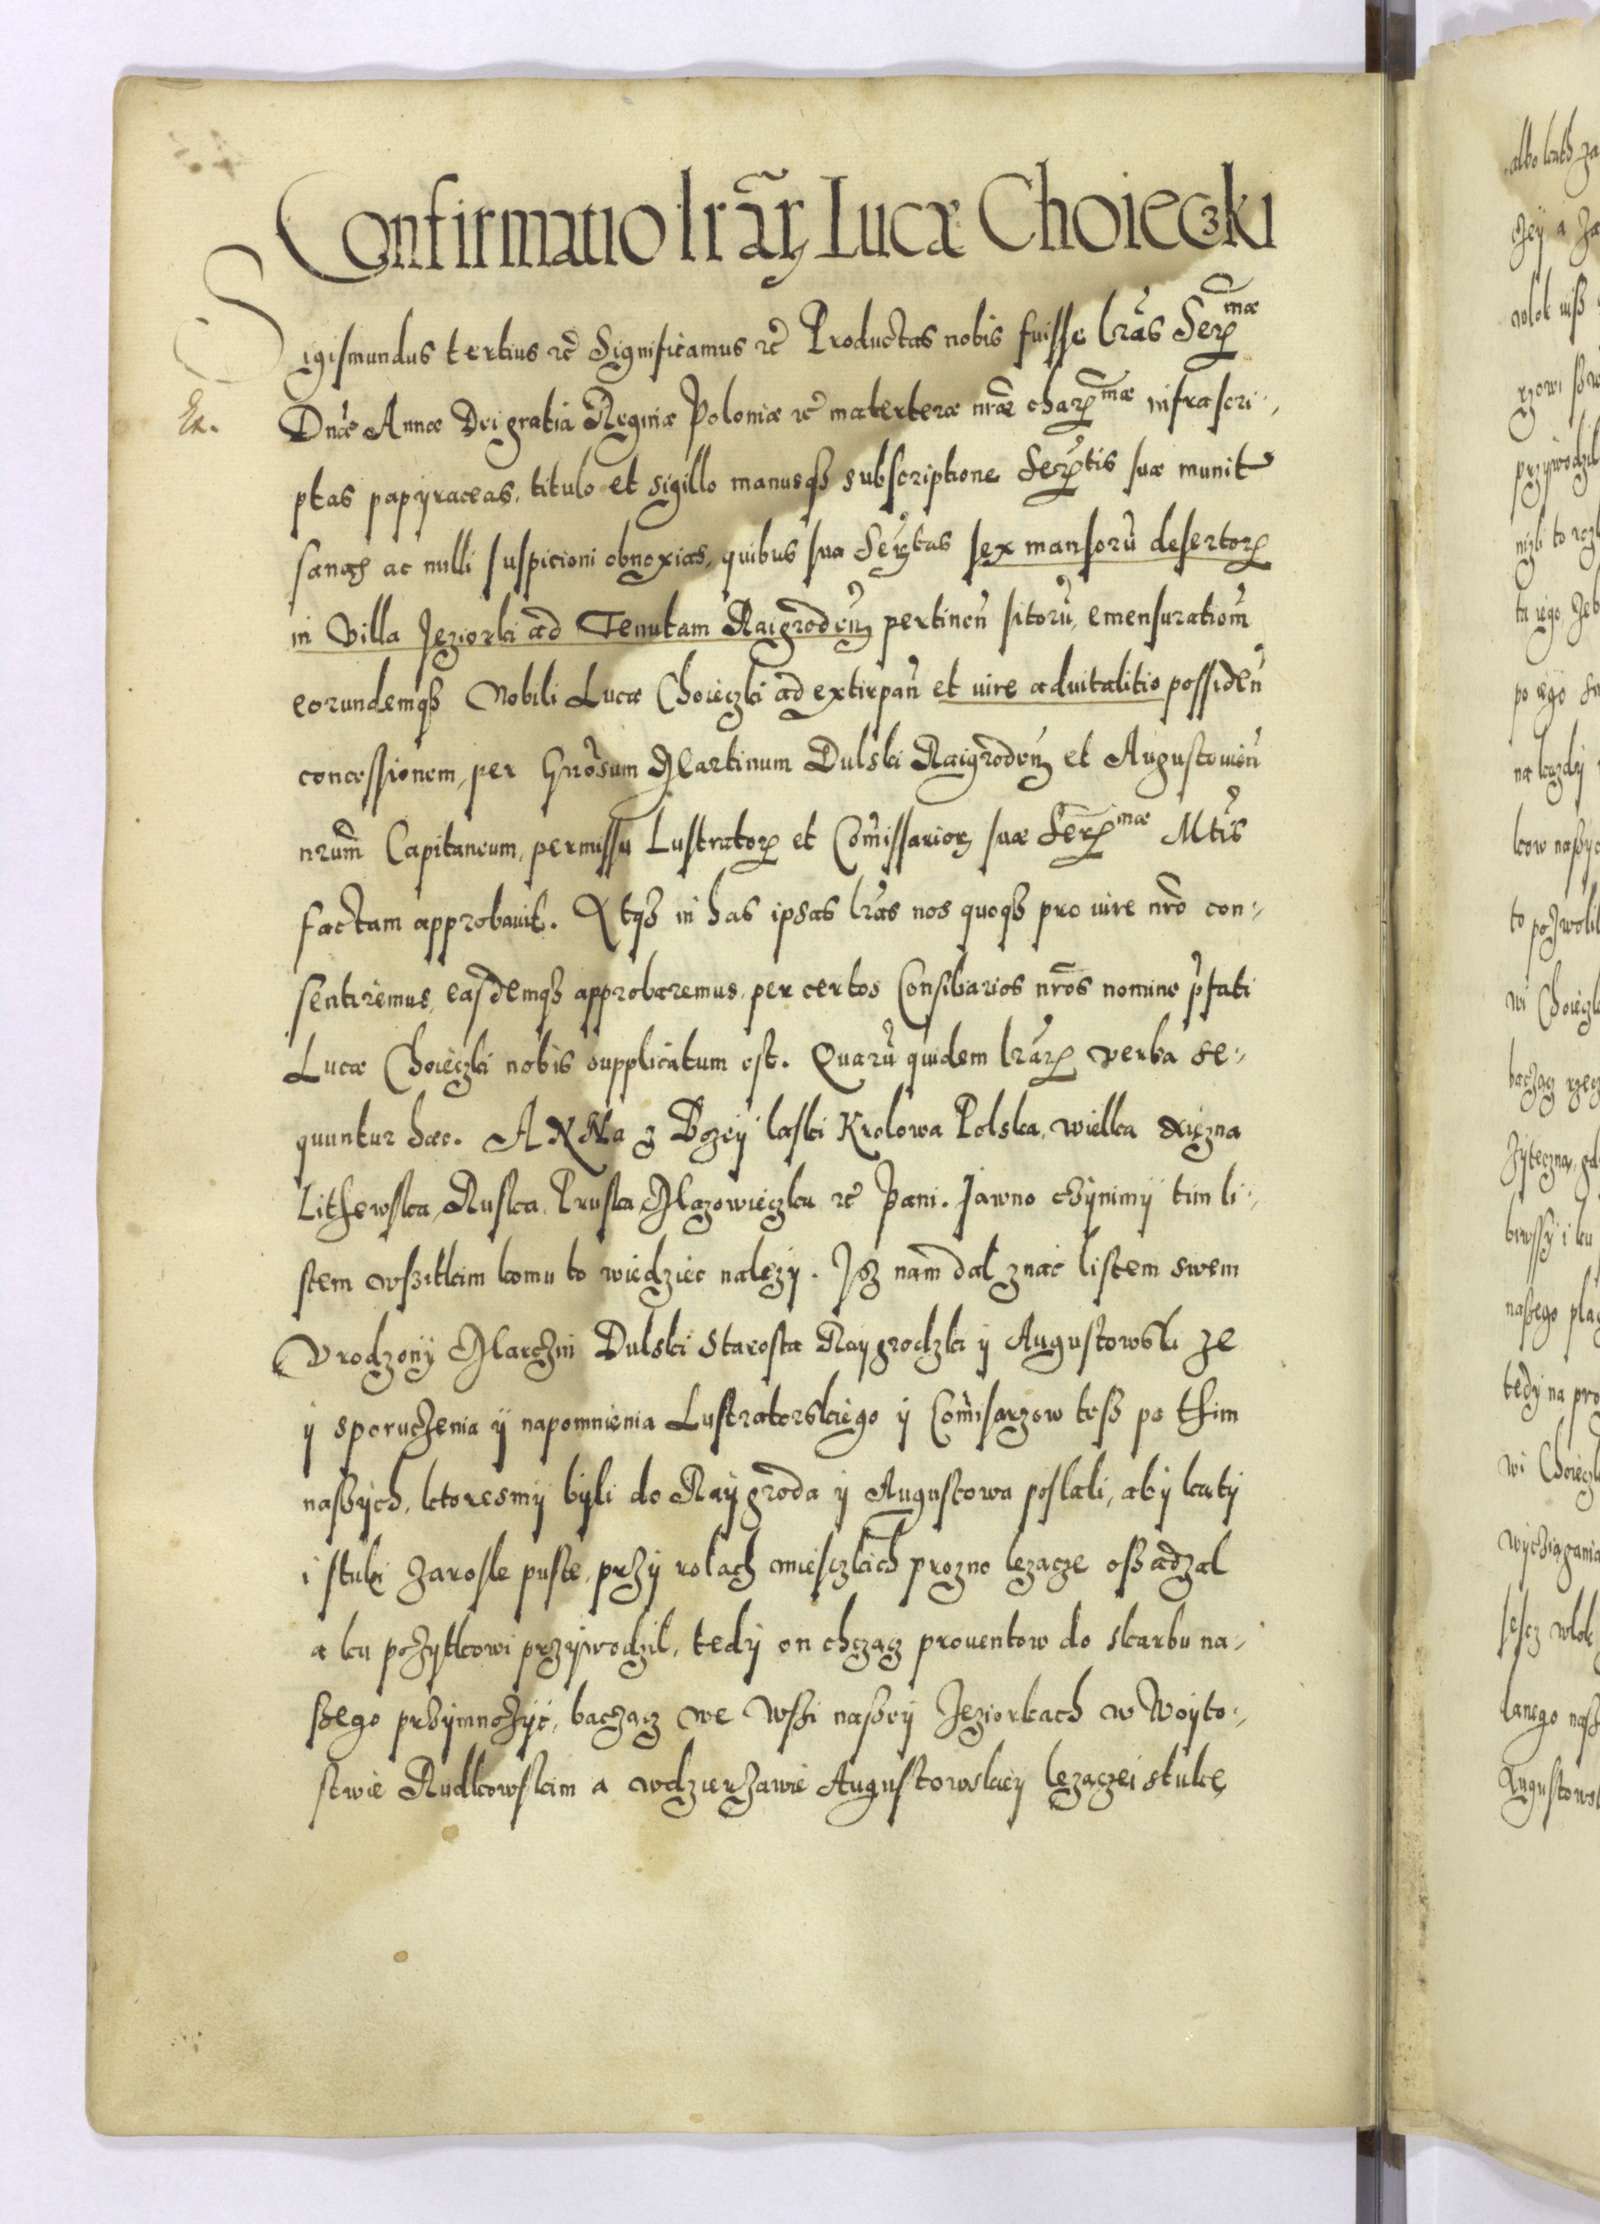 Confirmatio lrãrꝝ Lucæ Choieczki
Sigismundus tertius rc̃ Significamus rc̃ Productas nobis fuisse lrãs Serꝝmæ
Ex.
Dnæ Annæ Dei gratia Reginæ Poloniæ rc̃ materteræ nræ charꝝmæ infrascri-,
ptas papyraceas, titulo et sigillo manusqꝫ subscriptione Serꝝtis suæ munit
sanasqꝫ ac nulli suspicioni obnoxias, quibus sua Serꝝtas sex mansorũ desertorꝝ
in Villa Jeziorki ad Tenutam Raigroden̄ pertinen̄ sitorũ, emensurationẽ
eorundemqꝫ Nobili Lucæ Choieczki ad extirpan̄ et iure aduitalitio possiden̄
concessionem, per Gnrosum Martinum Dulski Raigroden̄ et Augustouien̄
nrum̃ Capitaneum, permissu Lustratorꝝ et Com̃issariorꝝ suæ Serꝝmæ Mtis
factam approbauit. Utqꝫ in has ipsas lrãs nos quoqꝫ pro iure nr̃o con-,
sentiremus, easdemqꝫ approbaremus, per certos Consiliarios nr̃os nomine p̃fati
Lucæ Choieczki nobis supplicatum est. Quarũ quidem lrãrꝝ verba se-,
quuntur hæc. ANNa z Bozey laski Krolowa Polska, wielka xiezna
Lithewska, Ruska, Pruska, Mazowieczka rc̃ Pani. Jawno czynimy tim li-,
stem wszitkim komu to wiedziec nalezy. Jsz nam dal znac listem swem
Vrodzony Marczin Dulski Starosta Raygrodzki y Augustowski ze
y sporuczenia y napomnienia Lustratorskiego y Com̃isarzow tesz po thim
naszych, ktoresmy byli do Raygroda y Augustowa poslali, aby katy
i stuki zarosle puste, przy rolach mieisczkich prozno lezacze oszadzal
a ku pozytkowi przywodzil, tedy on chczacz prouentow do skarbu na-,
szego przymnozyc, baczacz we wszi naszey Jeziorkach w Woyto-,
stwie Rudkowskim a wdzierzawie Augustowskiey lezaczei stuke